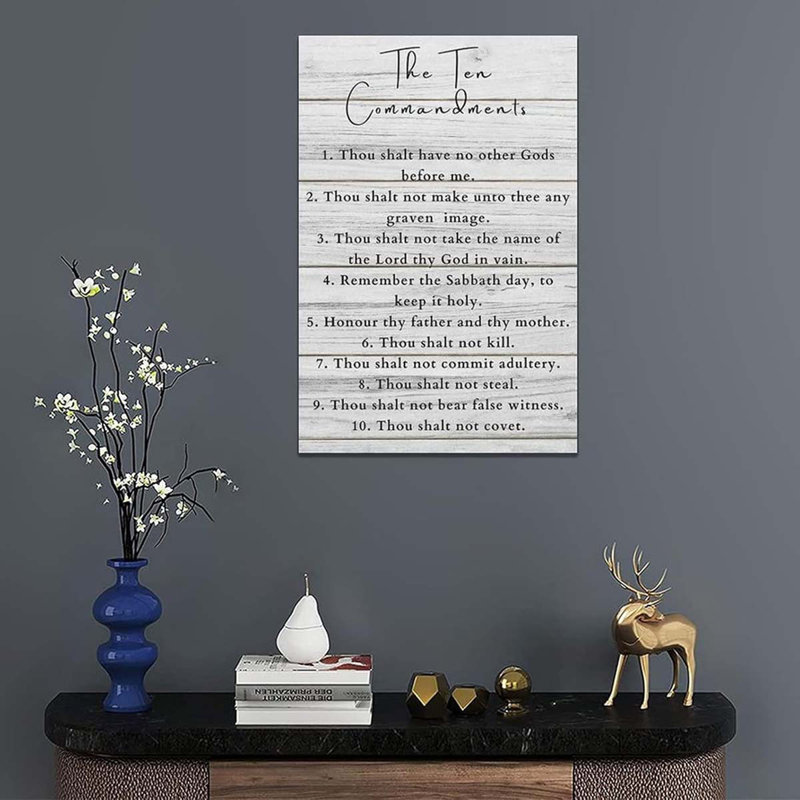 The Ten
Commandments
1. Thou shalt have no other Gods
before me.
2. Thou shalt not make unto thee any
graven image.
3. Thou shalt not take the name of
the Lord thy God in vain.
4. Remember the Sabbath day, to
keep it holy.
5. Honour thy father and thy mother.
6. Thou shalt not kill.
7. Thou shalt not commit adultery.
8. Thou shalt not steal.
9. Thou shalt not bear false witness.
10. Thou shalt not covet.
DIE EINSAMKEIT
DER PRIMZAHLEN